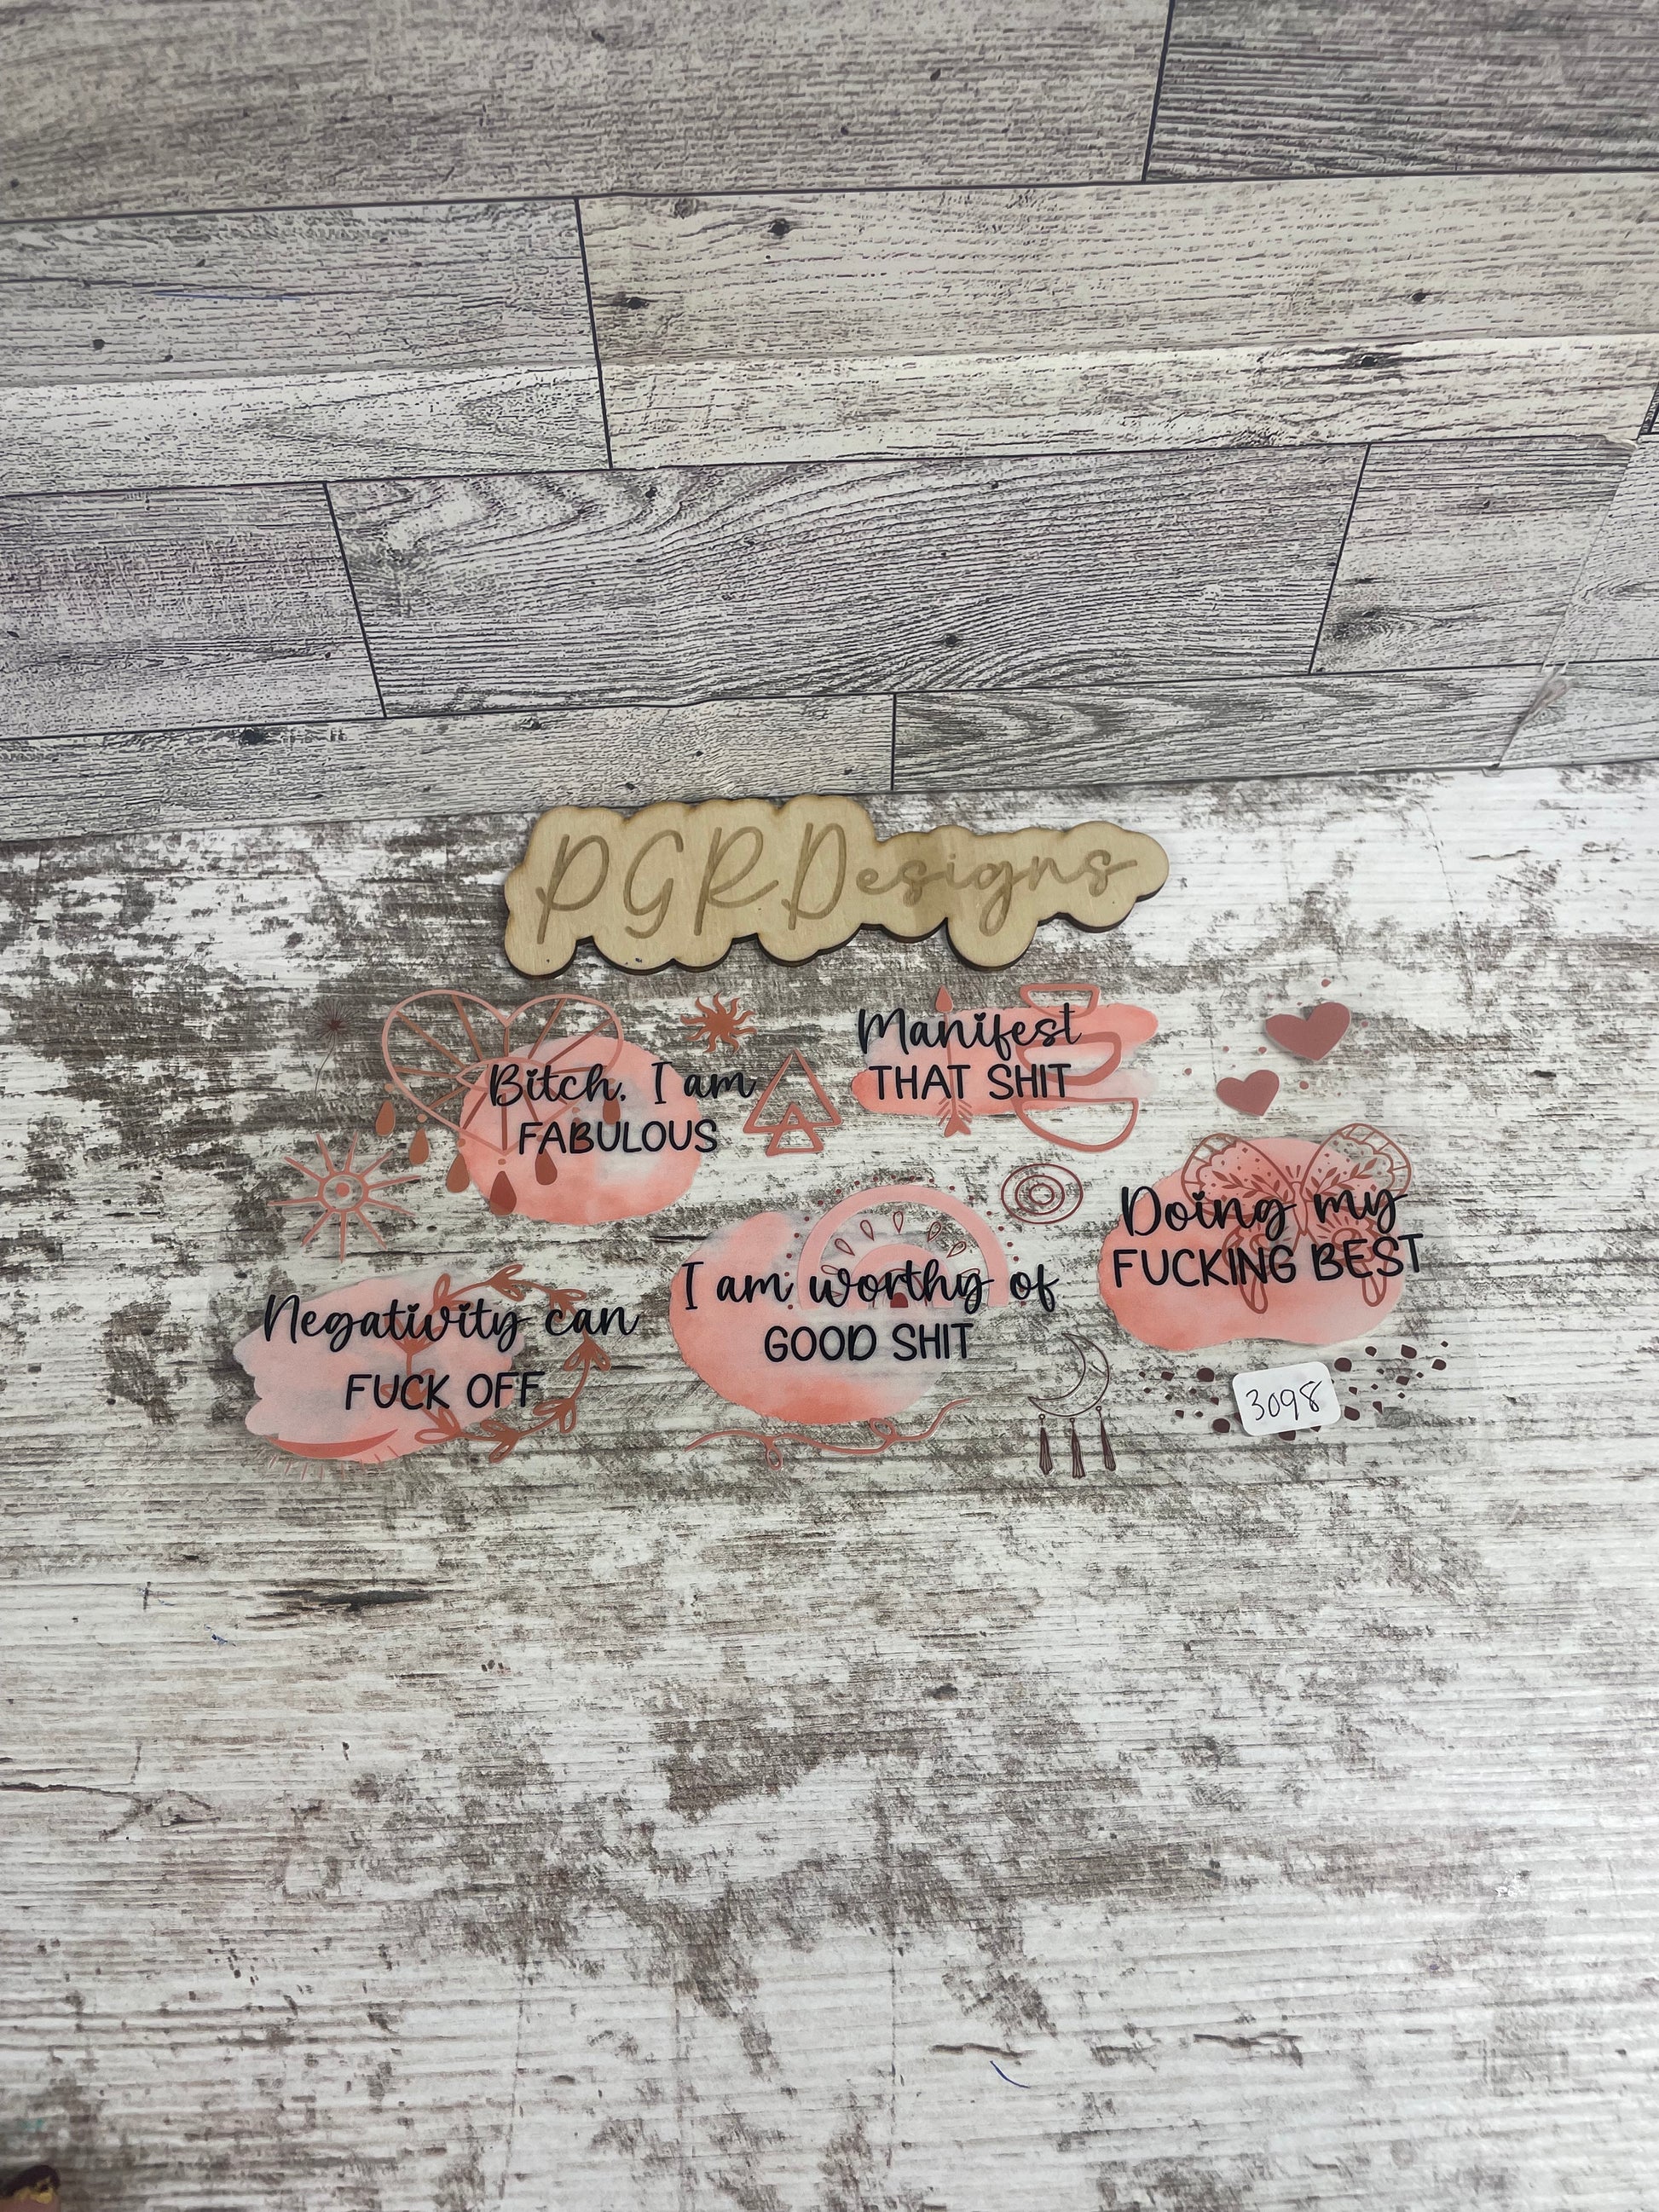 PGRDesigns
Bitch, I am
FABULOUS
Manifest
THAT SHIT
Doing my
FUCKING BEST
I am worthy of
GOOD SHIT
Negativity can
FUCK OFF
3098